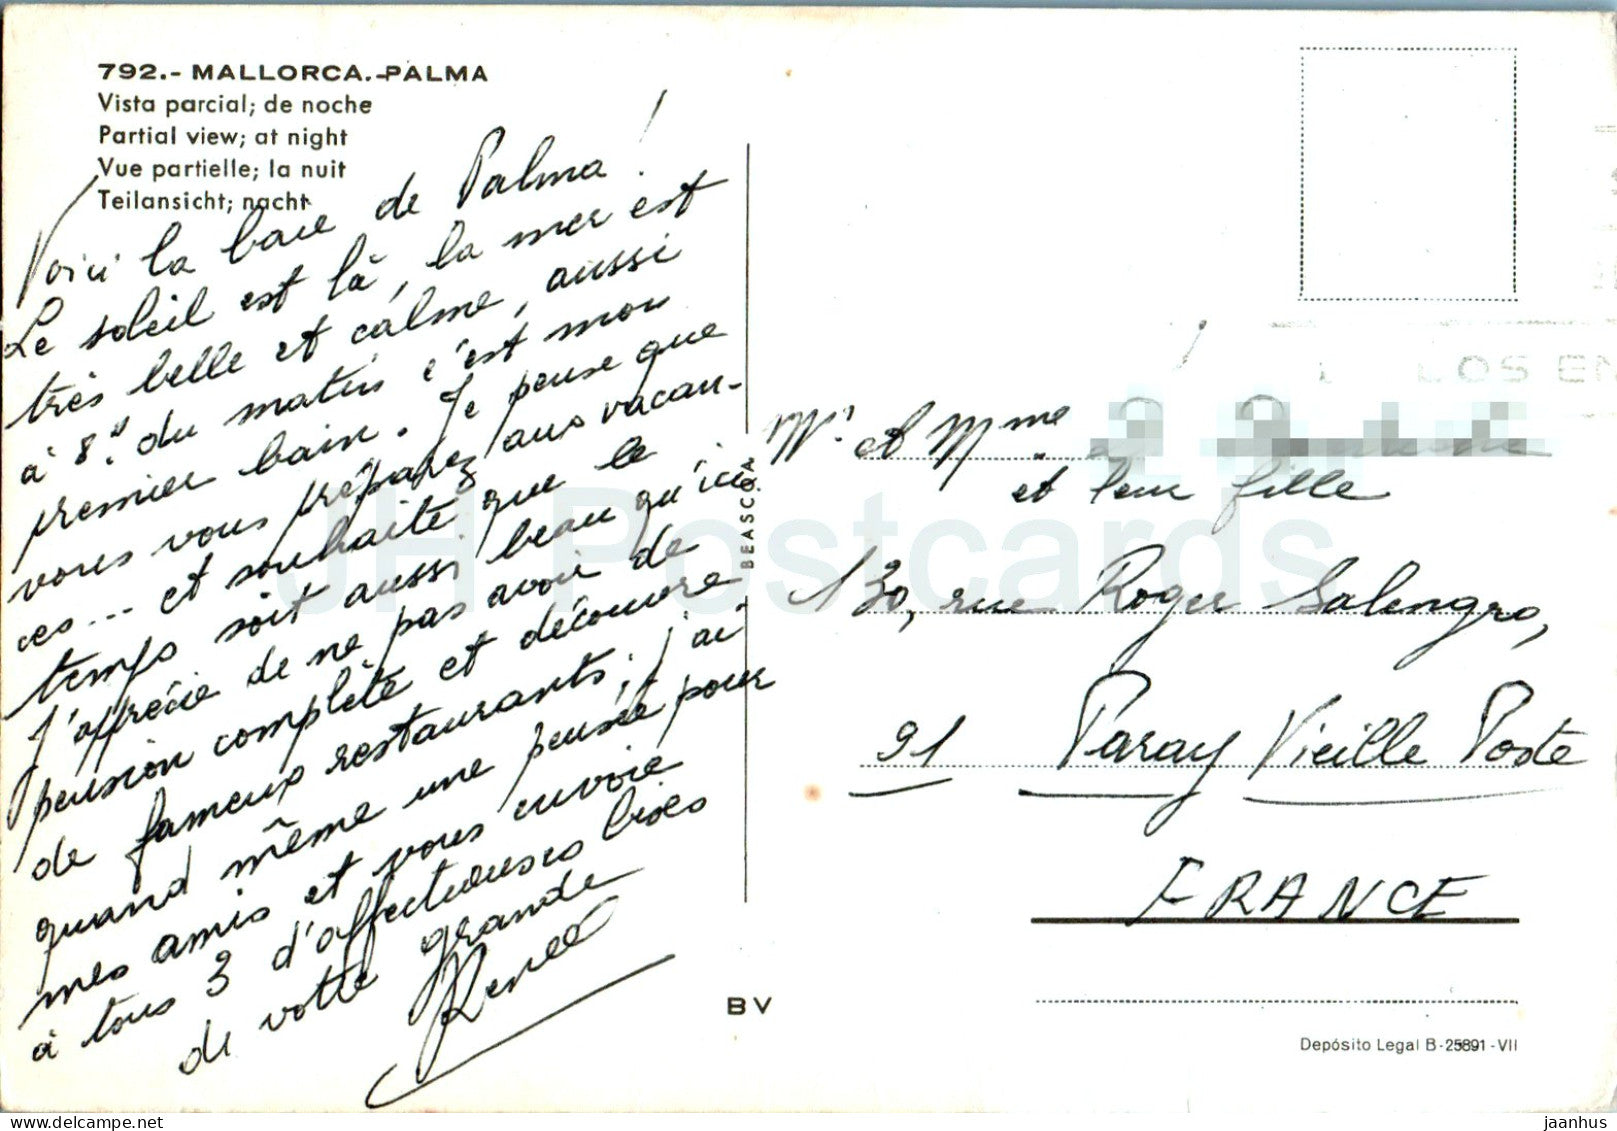 792.- MALLORCA.-PALMA
Vista parcial; de noche
Partial view; at night
Vue partielle; la nuit
Teilansicht; nacht
Voici la baie de Palma !
Le soleil est là, la mer est
très belle et calme, aussi
à 8h du matin c'est mon
premier bain. Je pense que
vous vous préparez aux vacan-
ces... et souhaite que le
temps soit aussi beau qu'ici
J'apprécie de ne pas avoir de
pension complète et découvre
de fameux restaurants; j'ai
quand même une pensée pour
mes amis et vous envoie
à tous 3 d'affectueuses bises
de votre grande
Renée
BEASCOA
BV
LOS EN
Mr. et Mme
et leur fille
130, rue Roger Salengro,
91 Paray Vieille Poste
FRANCE
Depósito Legal B-25891-VII
JH Postcards
jaanhus @ delcampe.net